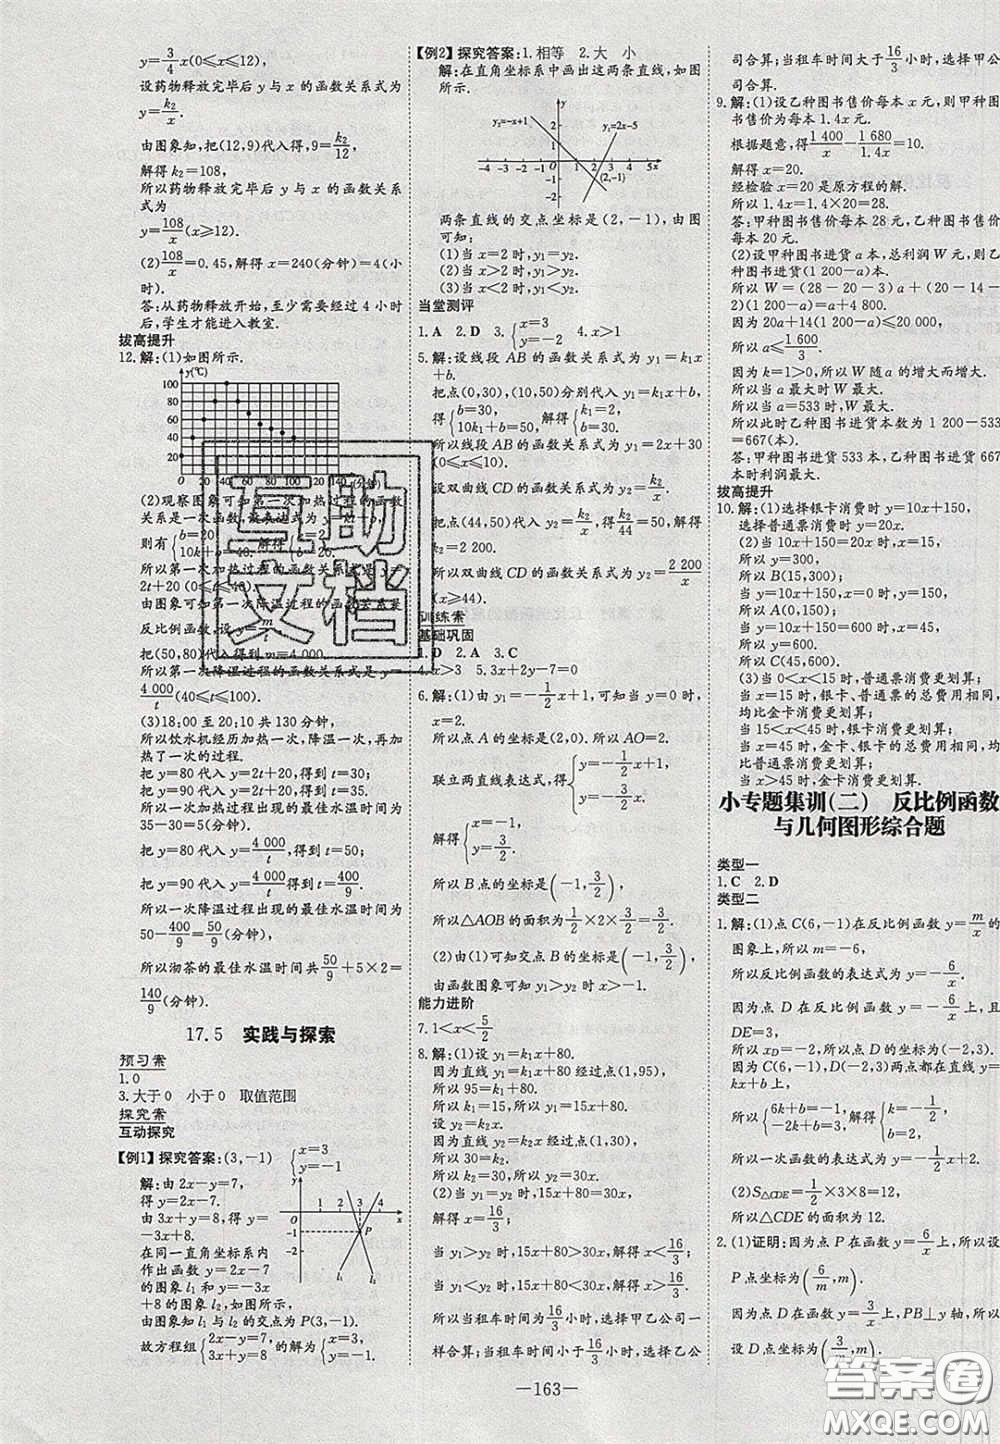 y=3/4x(0≤x≤12)
设药物释放完毕后 y 与 x 的函数关系式为
y=k₂/x.
由图象知,把(12,9)代入得,9=k₂/12,
解得 k₂=108,
所以药物释放完毕后 y 与 x 的函数关系式
为
y=108/x(x≥12).
(2)108/x=0.45,解得 x=240(分钟)=4(小
时).
答:从药物释放开始,至少需要经过 4 小时
后,学生才能进入教室.
拔高提升
12.解:(1)如图所示.
y(℃)
100
80
60
40
20
0 20 40 60 80 100 120 140 x(分钟)
(2)观察图象可知第一次加热过程的函数
关系是一次函数,设表达式为 y=kt+b,
则有{b=20, 10k+b=40,解得{k=2, b=20.
所以第一次加热过程的函数关系式是 y=
2t+20(0≤t≤40).
由图象可知第一次降温过程的函数关系是
反比例函数,设 y=m/t,
把(50,80)代入,得到 m=4 000,
所以第一次降温过程的函数关系式是 y=
4 000/t(40≤t≤100).
(3)18:00 至 20:10 共 130 分钟,
所以饮水机经历加热一次,降温一次,再加
热了一次的过程.
把 y=80 代入 y=2t+20,得到 t=30;
把 y=90 代入 y=2t+20,得到 t=35,
所以一次加热过程出现的最佳水温时间为
35-30=5(分钟).
把 y=80 代入 y=4 000/t,得到 t=50;
把 y=90 代入 y=4 000/t,得到 t=400/9,
所以一次降温过程出现的最佳水温时间为
50-400/9=50/9(分钟),
所以沏茶的最佳水温时间共有50/9+5×2=
140/9(分钟).
17.5 实践与探索
预习案
1.0
3.大于0 小于0 取值范围
探究案
互动探究
【例1】探究答案:(3,-1) {x=3 y=-1
解:由 2x-y=7,
得 y=2x-7.
由 3x+y=8,得 y=
-3x+8.
在同一直角坐标系内
作出函数 y=2x-7
的图象 l₁ 和 y=-3x
+8 的图象 l₂,如图所示,
由图象知 l₁ 与 l₂ 的交点为 P(3,-1).
故方程组{2x-y=7, 3x+y=8的解为{x=3, y=-1.
1 2 3 4 x
-1
-2
P
l₁ l₂
【例2】探究答案:1.相等 2.大 小
解:在直角坐标系中画出这两条直线,如图
所示.
y₁=-x+1 y₂=2x-5
-4 -3 -2 -1 0 1 2 3 4 5x
(2,-1)
两条直线的交点坐标是(2,-1),由图
可知:
(1)当 x=2 时,y₁=y₂.
(2)当 x>2 时,y₁<y₂.
(3)当 x<2 时,y₁>y₂.
当堂测评
1.A 2.D 3.{x=3 y=-2 4.x>1
5.解:设线段 AB 的函数关系式为 y₁=k₁x
+b.
把点(0,30),(10,50)分别代入 y₁=k₁x+b,
得{b=30, 10k₁+b=50,解得{k₁=2, b=30.
所以线段 AB 的函数关系式为 y₁=2x+30
(0≤x≤10).
设双曲线 CD 的函数关系式为 y₂=k₂/x,
把点(44,50)代入 y₂=k₂/x,得50=k₂/44,
解得 k₂=2 200.
所以双曲线 CD 的函数关系式为 y₂=2 200/x
(x≥44).
训练案
基础巩固
1.D 2.A 3.C
4.x>3 5.3x+2y-7=0
6.解:(1)由 y₁=-1/2x+1,可知当 y=0时,
x=2.
所以点 A 的坐标是(2,0),所以 AO=2.
联立两直线表达式,得{y=-1/2x+1, y=-3/2x,
解得{x=-1, y=3/2.
所以 B 点的坐标是(-1,3/2),
所以△AOB 的面积为1/2×2×3/2=3/2.
(2)由(1)可知交点 B 的坐标是(-1,3/2),
由函数图象可知 y₁>y₂ 时,x>-1.
能力进阶
7.1<x<5/2
8.解:(1)设 y₁=k₁x+80.
因为直线 y₁=k₁x+80 经过点(1,95),
所以 95=k₁+80,
所以 k₁=15,所以 y₁=15x+80.
设 y₂=k₂x.
因为直线 y₂=k₂x 经过点(1,30),
所以 k₂=30.
所以 y₂=30x.
(2)当 y₁=y₂ 时,15x+80=30x,
解得 x=16/3;
当 y₁>y₂ 时,15x+80>30x,解得 x<16/3;
当 y₁<y₂ 时,15x+80<30x,解得 x>16/3.
所以当租车时间为16/3小时,选择甲乙公司一
样合算;当租车时间小于16/3小时,选择乙公
司合算;当租车时间大于16/3小时,选择甲公
司合算.
9.解:(1)设乙种图书售价每本 x 元,则甲种
图书售价为每本 1.4x 元.
根据题意,得1 400/x-1 680/1.4x=10.
解得 x=20.
经检验 x=20 是原方程的解.
所以 1.4x=1.4×20=28.
答:甲种图书售价每本 28元,乙种图书售价
每本 20元.
(2)设甲种图书进货 a本,总利润 W元,则乙
种图书进货(1 200-a)本.
所以 W=(28-20-3)a+(20-14-
2)(1 200-a)=a+4 800.
因为 20a+14(1 200-a)≤20 000,
所以 a≤1 600/3.
因为 k=1>0,W 随 a 的增大而增大.
所以当 a 最大时 W 最大.
所以当 a=533 时,W 最大.
所以此时乙种图书进货本数为 1 200-533
=667(本).
答:甲种图书进货 533 本,乙种图书进货 667
本时利润最大.
拔高提升
10.解:(1)选择银卡消费时 y=10x+150,
选择普通票消费时 y=20x.
(2)当 10x+150=20x 时,x=15,
所以 y=300,
所以 B(15,300);
当 y=10x+150,x=0 时,y=150.
所以 A(0,150);
当 y=10x+150=600 时,x=45,
y=600.
所以 C(45,600).
(3)当 0<x<15 时,普通票消费更划算;
当 x=15 时,银卡、普通票的总费用相同,
均比金卡消费更划算;
当 15<x<45 时,银卡消费更划算;
当 x=45 时,金卡、银卡的总费用相同,均
比普通票消费更划算;
当 x>45 时,金卡消费更划算.
小专题集训(二) 反比例函数
与几何图形综合题
类型一
1.C 2.D
类型二
1.解:(1)点 C(6,-1)在反比例函数 y=m/x的
图象上,所以 m=-6,
所以反比例函数的表达式为 y=-6/x.
因为点 D 在反比例函数 y=-6/x上,且
DE=3,
所以 x_D=-2,所以点 D 的坐标为(-2,3).
因为 C(6,-1),D(-2,3)两点都在直线 y=
kx+b 上,
所以{6k+b=-1, -2k+b=3,解得{k=-1/2, b=2.
所以一次函数的表达式为 y=-1/2x+2.
(2)S△CDE=1/2×3×8=12,
所以△CDE 的面积为 12.
2.(1)证明:因为点 P 在函数 y=6/x上,所以设
P 点坐标为(6/m,m).
因为点 D 在函数 y=3/x上,PB⊥y 轴,所以
设 D 点坐标为(3/m,m).
—163—
互助
文档
答案圈
MXQE.COM